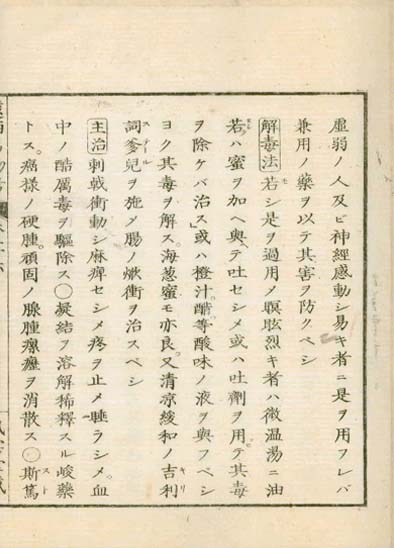 虚弱ノ人及ビ神經感動シ易キ者ニ是ヲ用フレバ
兼用ノ藥ヲ以テ其害ヲ防クベシ
解毒法 若シ是ヲ過用メ瞑眩烈キ者ハ微温湯ニ油
若ハ蜜ヲ加ヘ與ヘテ吐セシメ或ハ吐劑ヲ用テ其毒
ヲ除ケバ治ス或ハ橙汁醋等酸味ノ液ヲ與フベシ
ヨク其毒ヲ解ス海葱蜜モ亦良又清凉緩和ノ吉利
詞爹兒ヲ施メ腸ノ焮衝ヲ治スベシ
主治 刺戟衝動シ麻痺セシメ疼ヲ止メ睡ラシメ血
中ノ酷厲毒ヲ驅除ス〇凝結ヲ溶解稀釋スル峻藥
トス癌様ノ硬腫頑固ノ腺腫瘰癧ヲ消散ス〇斯篤